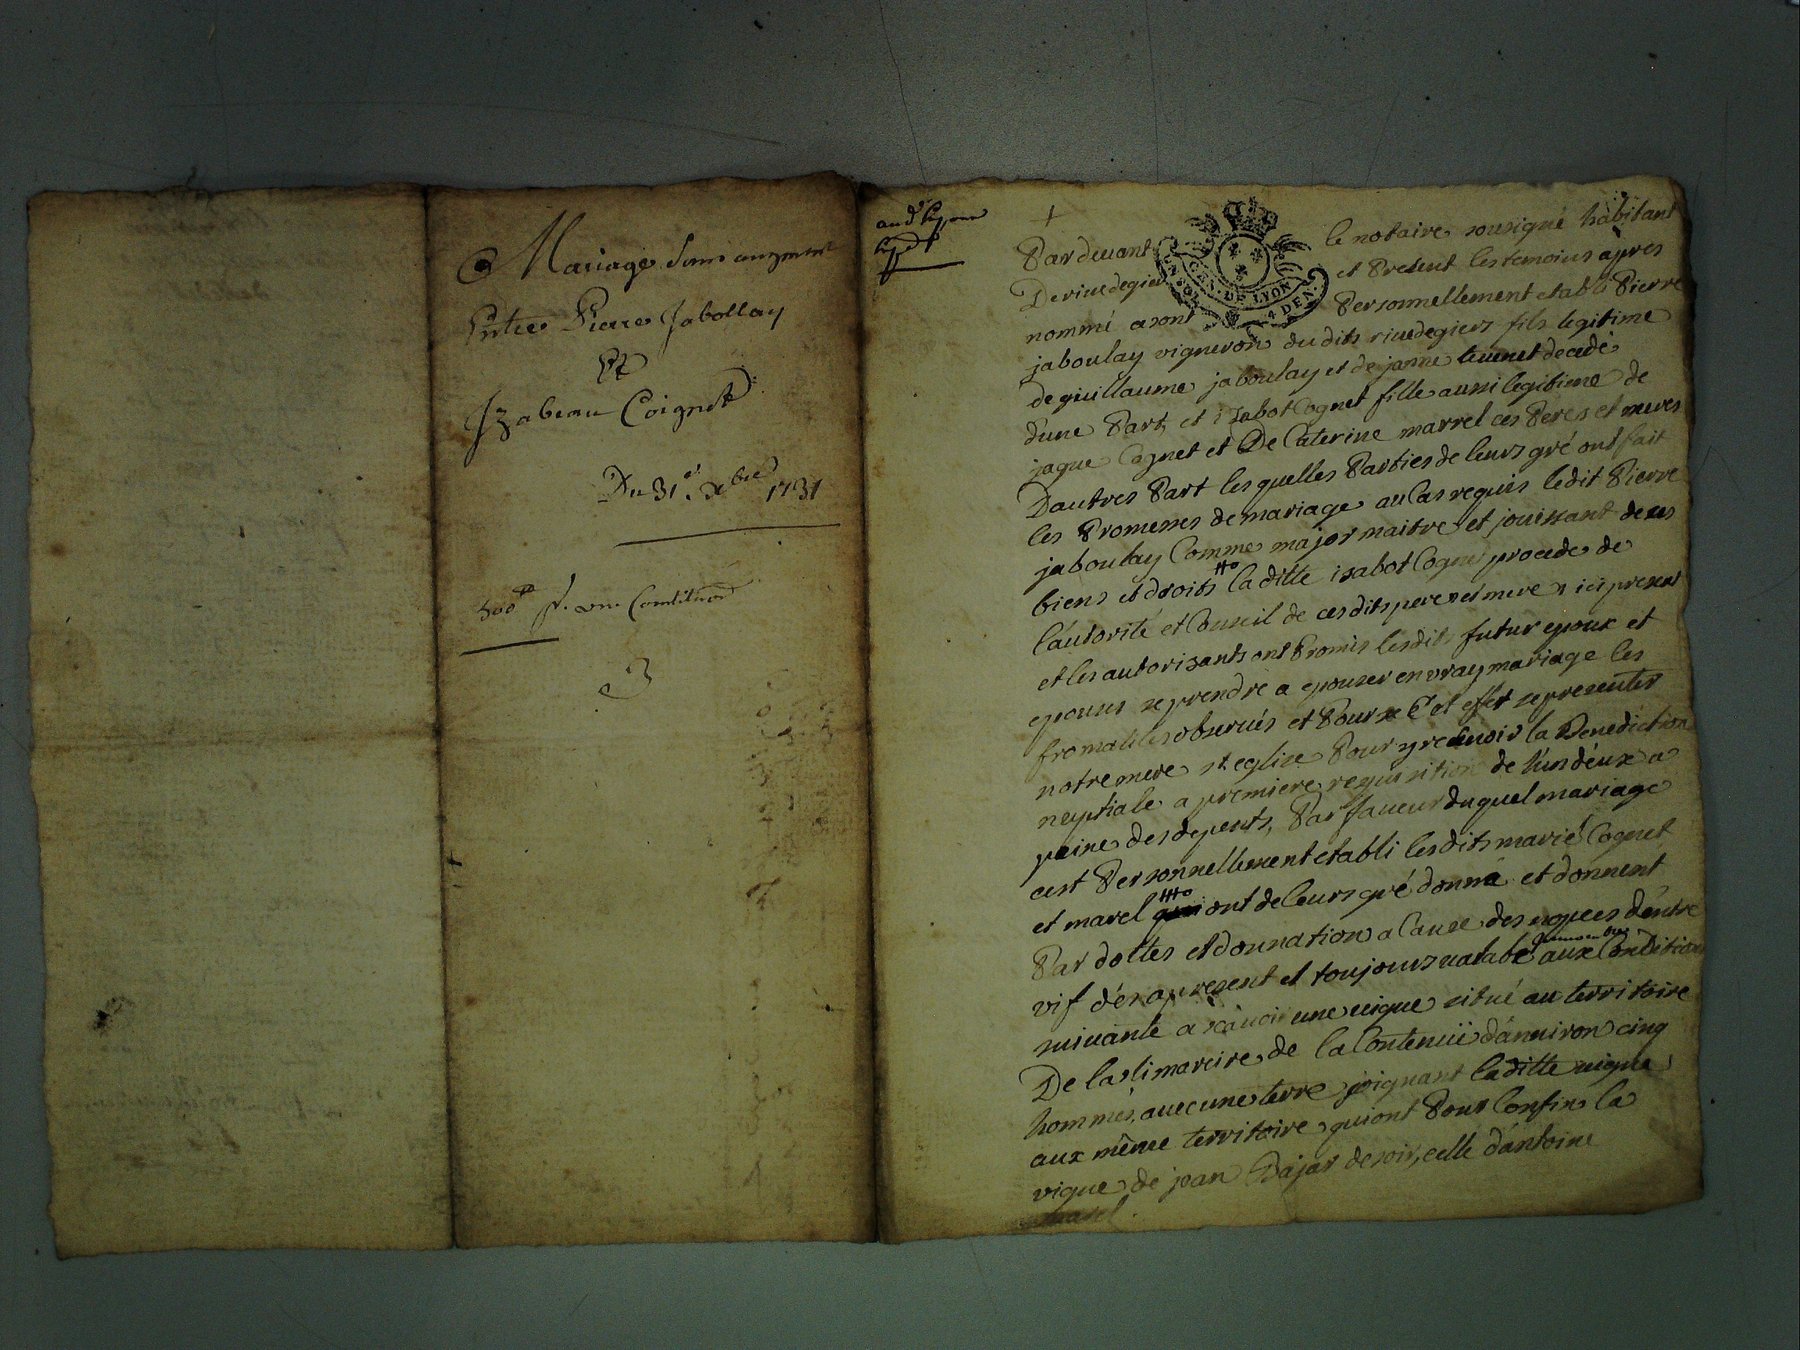 Mariage sans augment
Entre Pierre Jabollay
Et
Izabeau Coignet
Du 31e. Xbre 1731
500
3
+
GEN. DE LYON
4 DEN.
Pardeuant le notaire sousigné habitant
De riuedegier et Present les temoins apres
nommé asont Personnellement etabli Pierre
jaboulay vigneron du dits riuedegiers fils legitime
de guillaume jaboulay et de janne teuenet decede
d'une Part, et isabot Cognet fille aussi legitime de
jaque Cognet et De Caterine marrel ces Peres et meres
Dautres Part les quelles Parties de leurs gré ont fait
les Promesses de mariage au Cas requis ledit Pierre
jaboulay Comme major maitre et jouissant de ses
biens et droits la ditte isabot Cogne procede de
l'autorité et Conseil de ces dits pere et mere ici present
et les autorisants ont Promis lesdits futur epoux et
epouses se prendre a epouser en vray mariage les
fromalités obserués et Pour Cet effet se presenter
notre mere st eglise Pour y receuoir la Benediction
neuptiale a premiere requisition de l'un d'eux a
peine des depents, Par faueur du quel mariage
cest Personnellement etabli les dits marié Cognet
et marel ont de leurs gré donné et donnent
Par dottes et donnation a Cause des nopces d'entre
vif d'es apresent et toujours uatabe aux Conditions
suiuante a scauoir une uigne situé au territoire
De la slimareire de la Contenuë d'anuiron cinq
hommes, auec une terre joignant la ditte uigne
aux même territoire qui ont Pour Confin la
vigne de jean Dajar de soir, celle d'antoine
marel